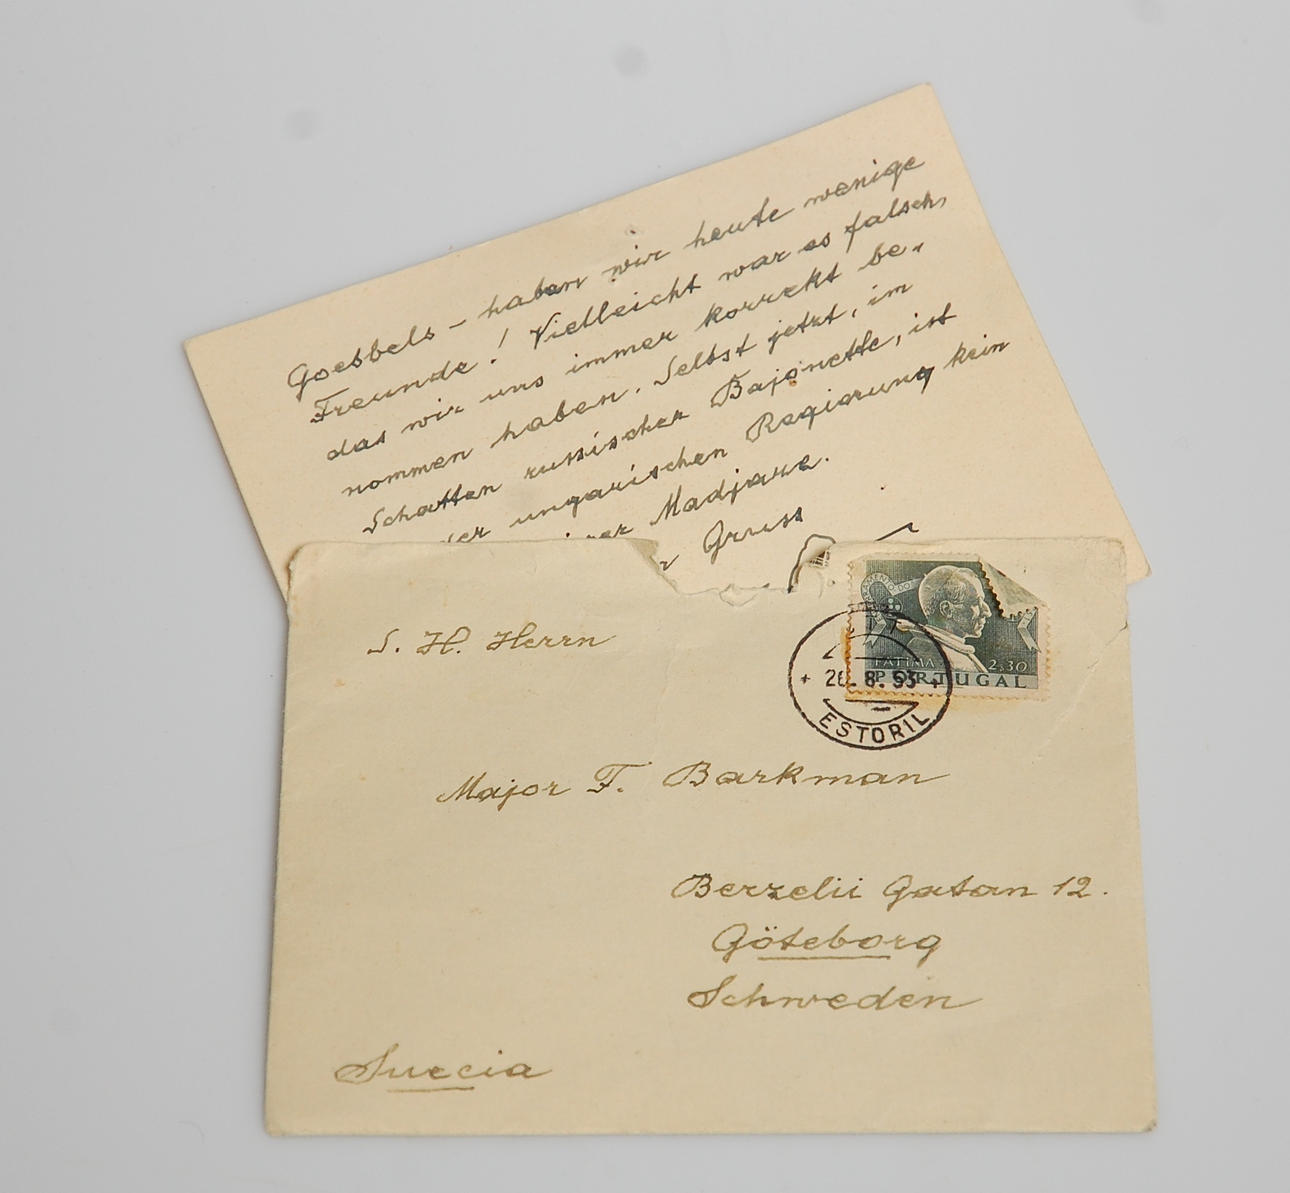 Goebbels – haben wir heute wenige
Freunde! Vielleicht war es falsch,
das wir uns immer korrekt be-
nommen haben. Selbst jetzt, im
Schatten russischer Bajonette, ist
der ungarischen Regierung kein
Madjare.
Gruss
S. H. Herrn
FATIMA 2$30
PORTUGAL
26. 8. 53
ESTORIL
Major F. Barkman
Berzelii Gatan 12.
Göteborg
Schweden
Suecia